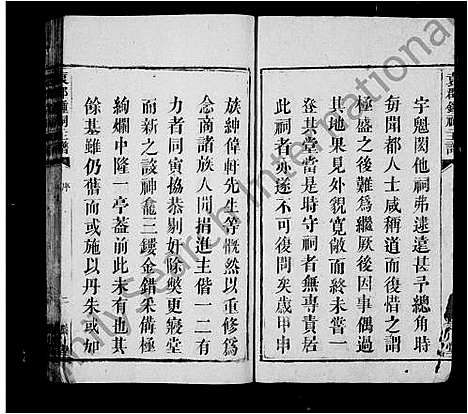 袁郡鍾祠主譜
宇魁閎他祠弗逮遠甚予總角時
每聞都人士咸稱道而復惜之謂
極盛之後難為繼厥後因事偶過
其地果見外貌寬敞而終未嘗一
登其堂當是時守祠者無專責居
此祠者亦遂不可復問矣歲甲申
族紳偉軒先生等慨然以重修為
念商諸族人間捐進主偕一二有
力者同寅協恭剔奸除獘更寢堂
而新之設神龕三鏤金錯采備極
絢爛中隆一亭蓋前此未有也其
餘基雖仍舊而或施以丹朱或如
袁郡鍾祠主譜
序
FamilySearch International